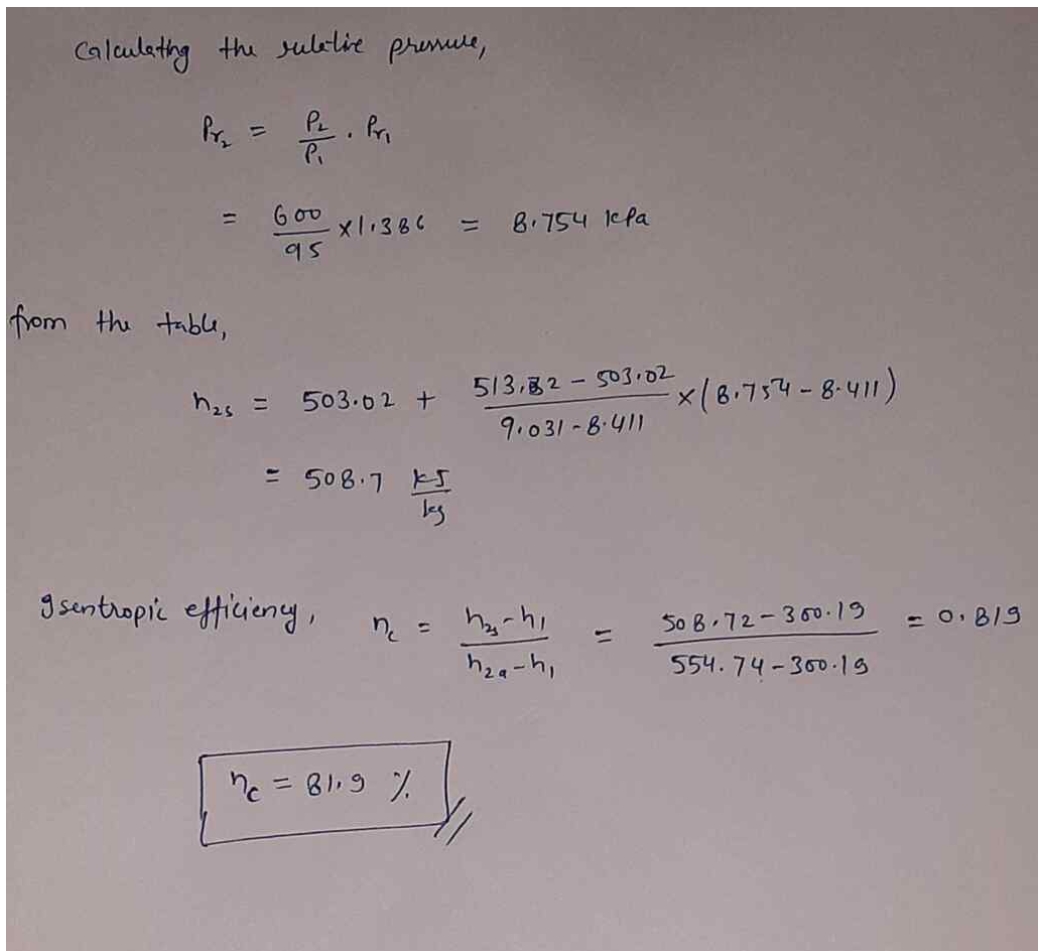 Calculating the relative pressure,
Pr₂ = P₂/P₁ . Pr₁
= 600/95 x 1.386 = 8.754 kPa
from the table,
h₂s = 503.02 + (513.32 - 503.02)/(9.031 - 8.411) x (8.754 - 8.411)
= 508.7 kJ/kg
Isentropic efficiency, ηc = (h₂s - h₁)/(h₂a - h₁) = (508.72 - 300.19)/(554.74 - 300.19) = 0.819
ηc = 81.9 %